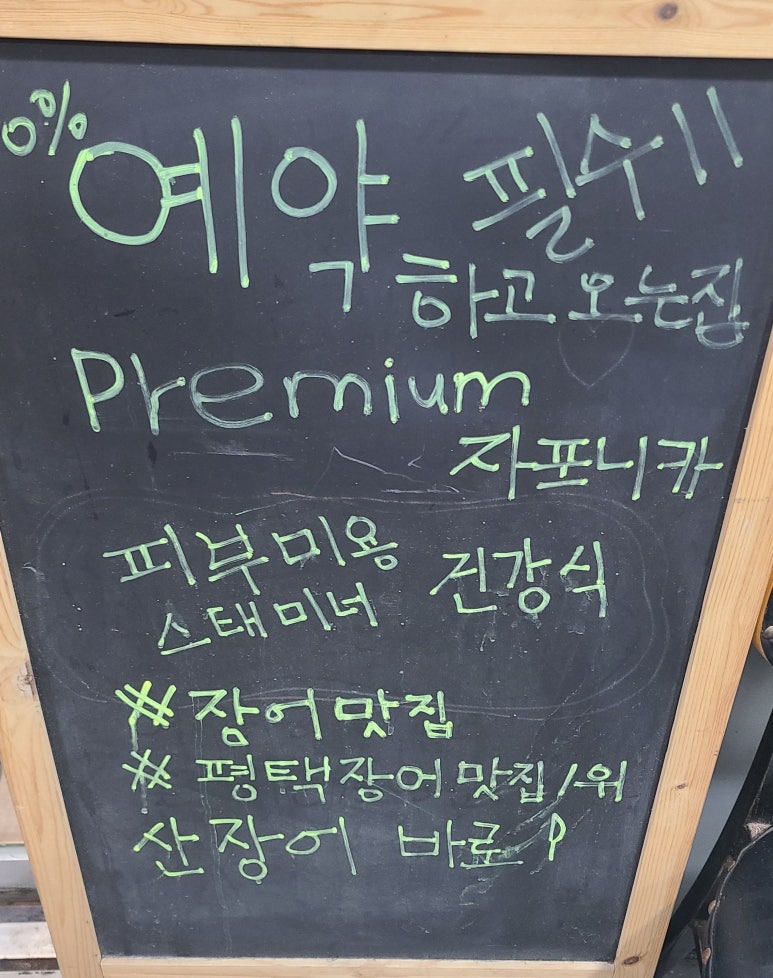 0% 예약 필수!!
하고 오는집
Premium
자포니카
피부미용
스태미너 건강식
# 장어맛집
# 평택장어맛집/위
산장어 바로 P